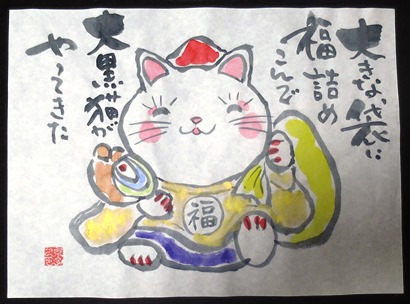 大きな袋に
福詰め
こんで
大黒猫が
やってきた
福